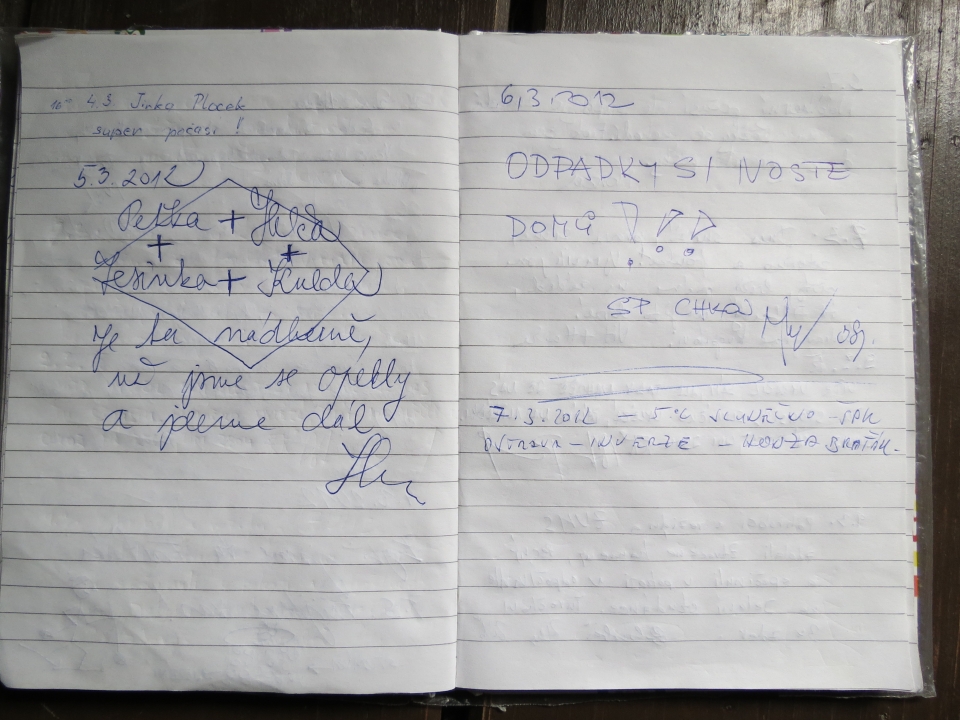 4.3. Jirka Placek
super počasí !
5.3.2012
Peťka + Helča
+ +
Jesinka + Kulda
Je tu nádherně,
už jsme se opekly
a jdeme dál
6.3.2012
ODPADKY SI NOSTE
DOMŮ !!!
SP CHKO
7.3.2012 - 5°C SLUNEČNO -
OSTRAVA - INVERZE - HONZA